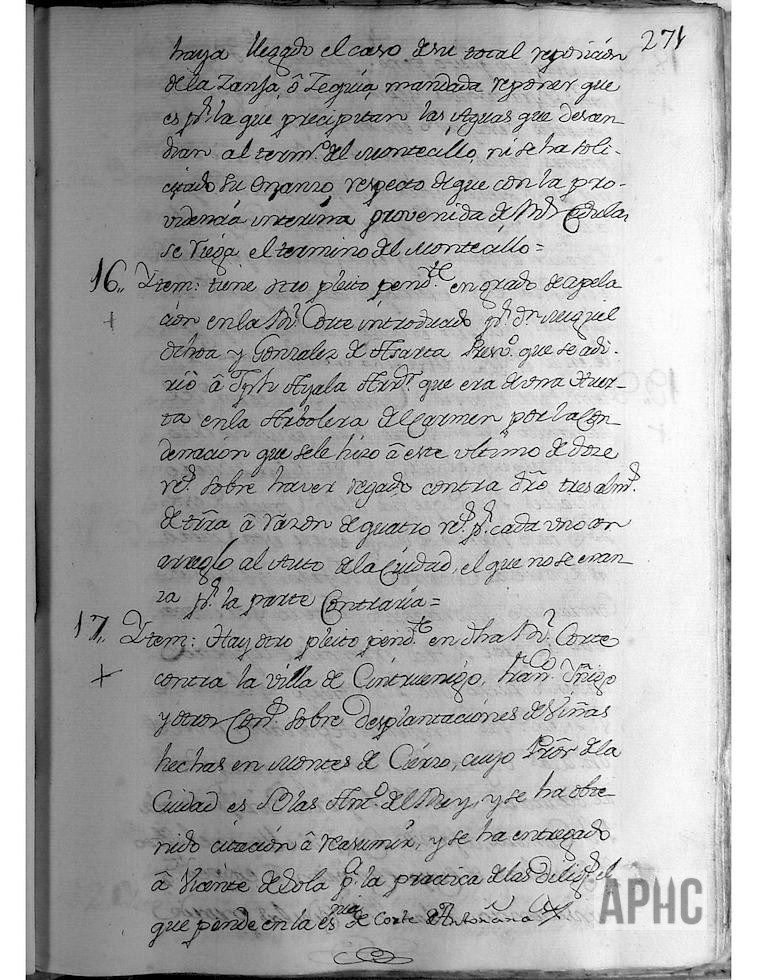 271
haya llegado el caso de su total reposicion
de la Zanja, ô Zequia, mandada reponer que
es pr. la que precipitan las Aguas que descan-
dian al termo. del Montecillo, ni se ha soli-
citado su avanzo, respecto de que con la pro-
videncia interina provenida de Rl. Cedula,
se riega el termino del Montecillo =
16,, Ytem: tiene otro pleito pendte. en grado de apela
cion en la Rl. Corte introducido pr. dn. Miguel
Ochoa y Gonzalez de Asarta Presvo. que se adi-
rió â Jph Ayala Ardr. que era de una Huer-
ta en la Arbolera del Carmen por la Con
denacion que se le hizo â este ultimo de doze
rs. sobre haver regado contra dro tres alms.
de trra â razon de quatro rs. pr. cada uno en
arreglo al Auto de la Ciudad, el que no se
za pr. la parte Contraria =
17,, Ytem: Hay otro pleito pendte. en dha Rl. Corte
contra la villa de Cintruenigo, Franco. Yñigo
y otros Conss. sobre desplantaciones de Viñas
hechas en Montes de Cierzo, cuyo Pror de la
Ciudad es Blas Anto. del Rey, y se ha obte-
nido citacion â reasumir, y se ha entregado
â Vicente de Sola pa. la practica de las diligs. el
que pende en la esnia de Corte de Antoñana
APHC